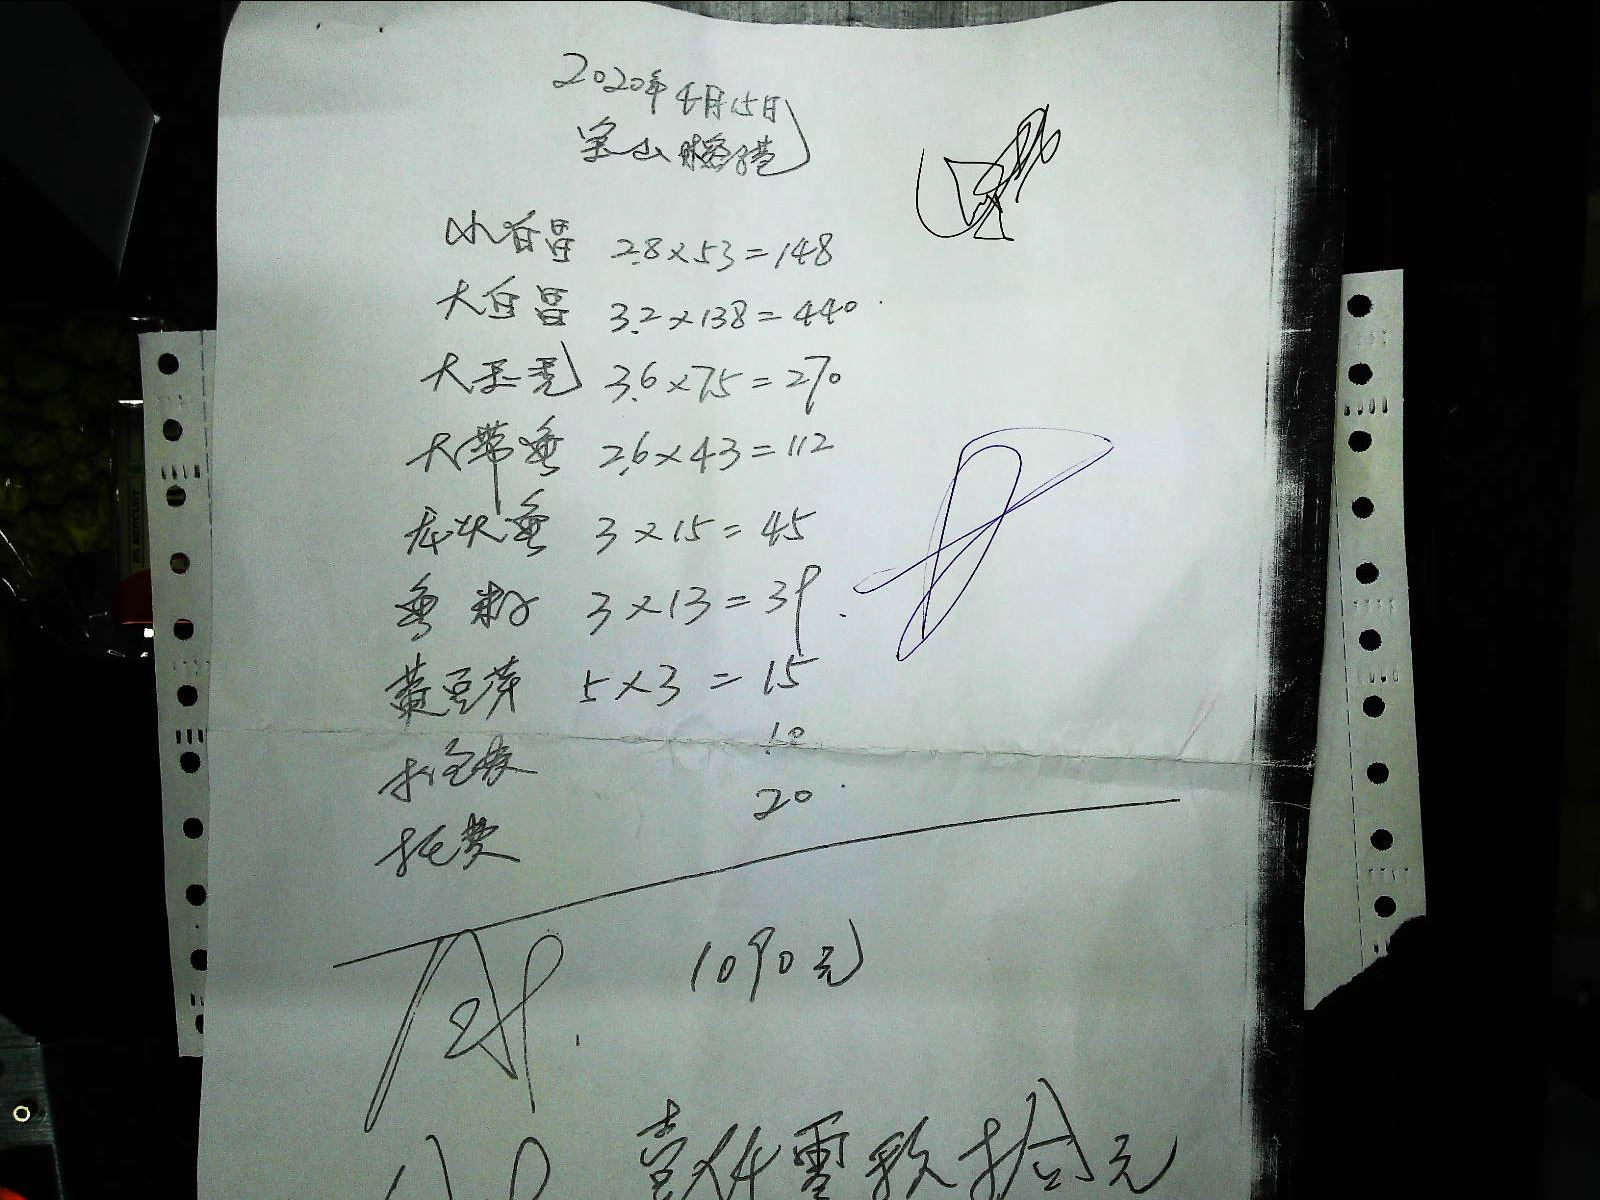 2020年4月15日
宝山
小白昌 2.8×53=148
大白昌 3.2×138=440
大 3.6×75=270
大带鱼 2.6×43=112
龙头鱼 3×15=45
3×13=39
黄豆芽 5×3=15
打包费 10
托费 20
1090元
壹仟零玖拾元